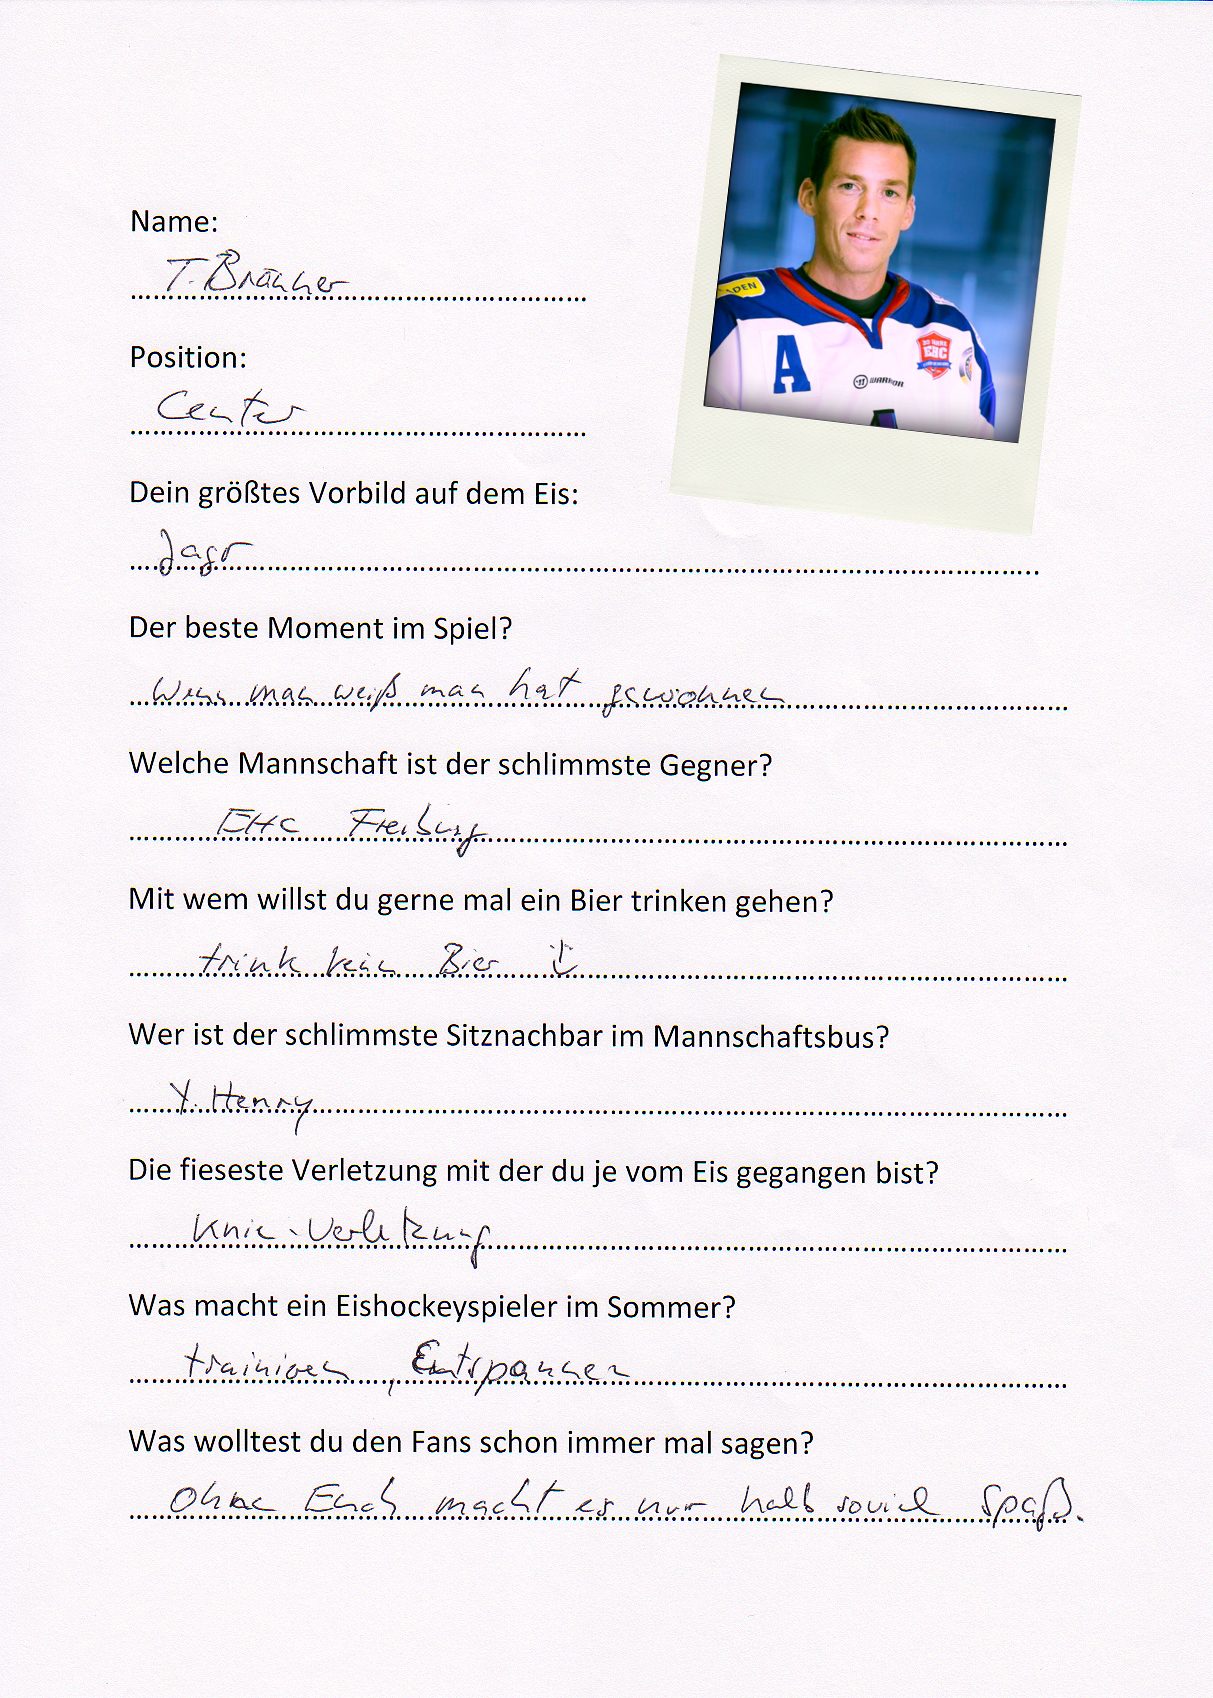 Name:
T. Bräuner
Position:
Center
Dein größtes Vorbild auf dem Eis:
Jagr
Der beste Moment im Spiel?
Wenn man weiß man hat gewonnen
Welche Mannschaft ist der schlimmste Gegner?
EHC Freiburg
Mit wem willst du gerne mal ein Bier trinken gehen?
trink kein Bier
Wer ist der schlimmste Sitznachbar im Mannschaftsbus?
Y. Henry
Die fieseste Verletzung mit der du je vom Eis gegangen bist?
Knie-Verletzung
Was macht ein Eishockeyspieler im Sommer?
trainieren, Entspannen
Was wolltest du den Fans schon immer mal sagen?
Ohne Euch macht es nur halb soviel Spaß.
ADEN
A
EHC
WARRIOR